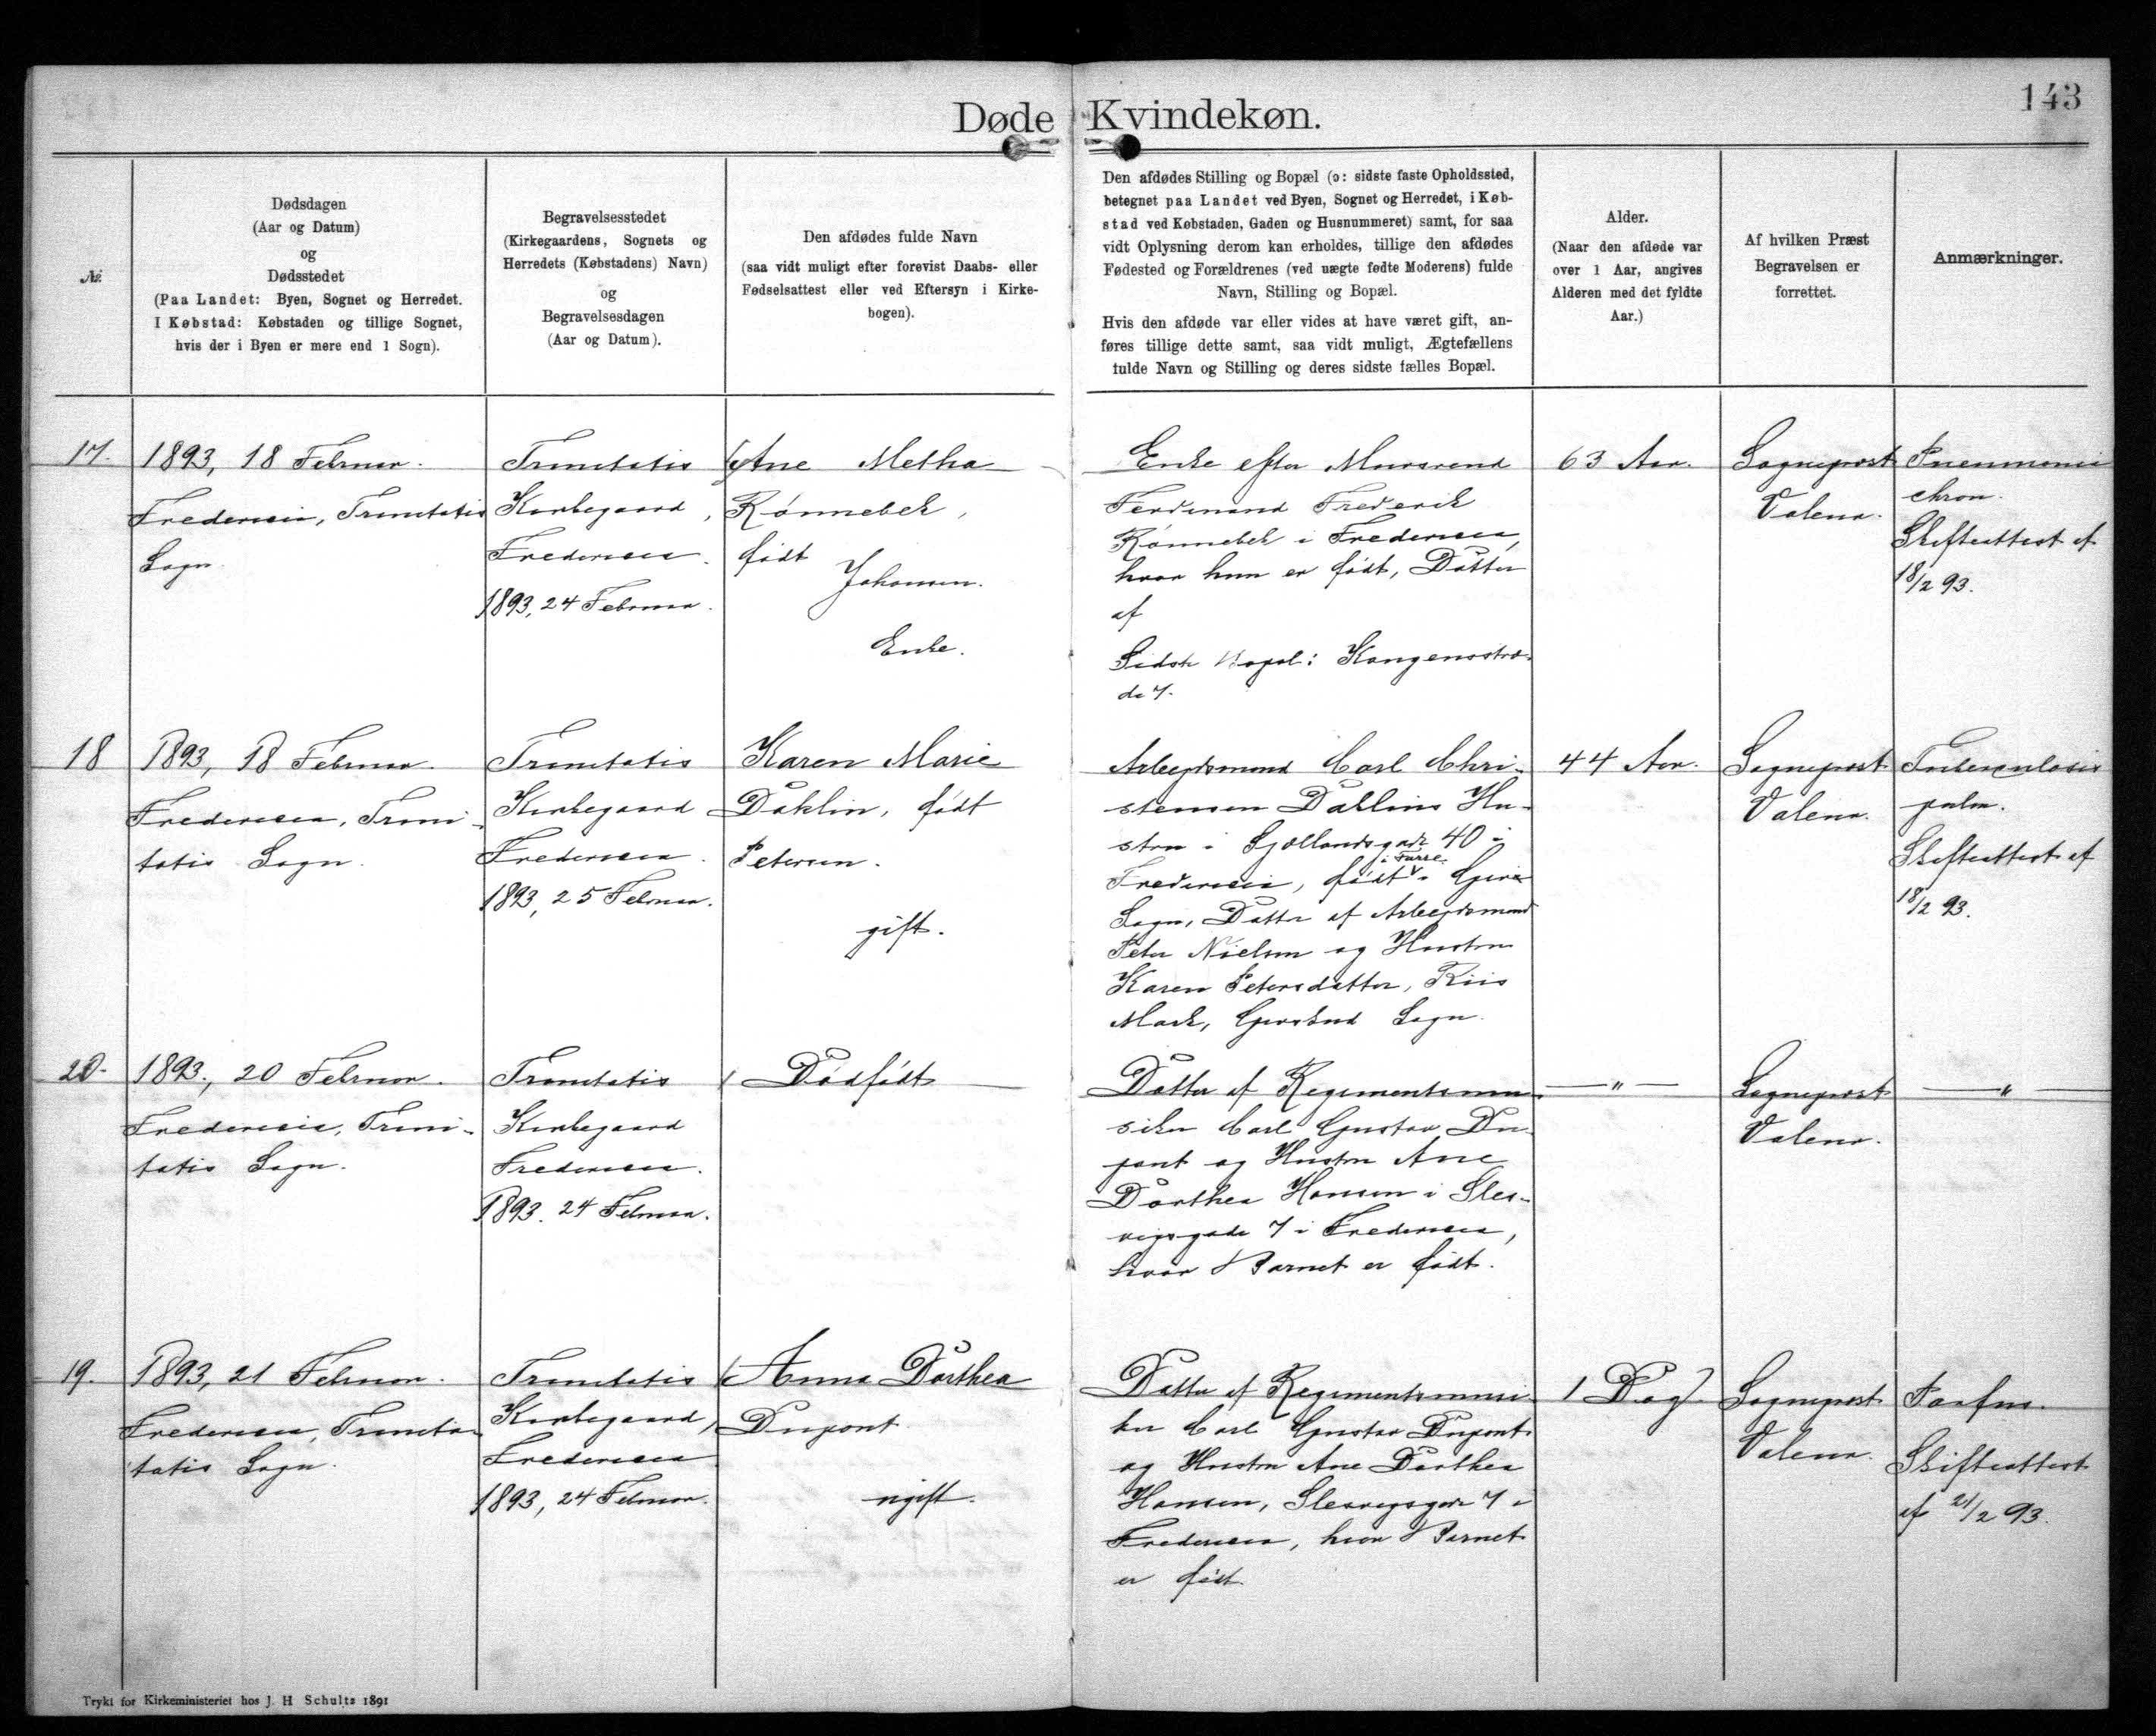 143
Døde Kvindekøn.
№
Dødsdagen
(Aar og Datum)
og
Dødsstedet
(Paa Landet: Byen, Sognet og Herredet.
I Købstad: Købstaden og tillige Sognet,
hvis der i Byen er mere end 1 Sogn).
Begravelsesstedet
(Kirkegaardens, Sognets og
Herredets (Købstadens) Navn)
og
Begravelsesdagen
(Aar og Datum).
Den afdødes fulde Navn
(saa vidt muligt efter forevist Daabs- eller
Fødselsattest eller ved Eftersyn i Kirke-
bogen).
Den afdødes Stilling og Bopæl (ɔ: sidste faste Opholdssted,
betegnet paa Landet ved Byen, Sognet og Herredet, i Køb-
stad ved Købstaden, Gaden og Husnummeret) samt, for saa
vidt Oplysning derom kan erholdes, tillige den afdødes
Fødested og Forældrenes (ved uægte fødte Moderens) fulde
Navn, Stilling og Bopæl.
Hvis den afdøde var eller vides at have været gift, an-
føres tillige dette samt, saa vidt muligt, Ægtefællens
fulde Navn og Stilling og deres sidste fælles Bopæl.
Alder.
(Naar den afdøde var
over 1 Aar, angives
Alderen med det fyldte
Aar.)
Af hvilken Præst
Begravelsen er
forrettet.
Anmærkninger.
17.
1893, 18 Februar.
Fredericia, Trinitatis
Sogn.
Trinitatis
Kirkegaard,
Fredericia.
1893, 24 Februar.
Ane Metha
Rønnebek,
født
Johansen.
Enke.
Enke efter Murersvend
Ferdinand Frederik
Rønnebek i Fredericia,
hvor hun er født, Datter
af
Sidste Bopæl: Kongensstræ-
de 7.
63 Aar.
Sognepræst
Valeur.
Pneumonia
chron.
Skifteattest af
18/2 93.
18
1893, 18 Februar.
Fredericia, Trini-
tatis Sogn.
Trinitatis
Kirkegaard
Fredericia.
1893, 25 Februar.
Karen Marie
Dahlin, født
Petersen.
gift.
Arbejdsmand Carl Chri-
stensen Dahlins Hu-
stru i Sjællandsgade 40 i
Fredericia, født i Farre i Give
Sogn, Datter af Arbejdsmand
Peter Nielsen og Hustru
Karen Petersdatter, Riis
Mark, Giverskud Sogn.
44 Aar.
Sognepræst
Valeur.
Tuberculosis
pulm.
Skifteattest af
18/2 93.
20.
1893, 20 Februar.
Fredericia, Trini-
tatis Sogn.
Trinitatis
Kirkegaard
Fredericia.
1893. 24 Februar.
Dødfødt
Datter af Regimentsmu-
siker Carl Gustav Du-
pont og Hustru Ane
Dorthea Hansen i Sles-
vigsgade 7 i Fredericia,
hvor Barnet er født.
— " —
Sognepræst
Valeur.
— " —
19.
1893, 21 Februar.
Fredericia, Trinita-
tatis Sogn.
Trinitatis
Kirkegaard,
Fredericia
1893, 24 Februar.
Anna Dorthea
Dupont.
ugift.
Datter af Regimentsmusi-
ker Carl Gustav Dupont
og Hustru Ane Dorthea
Hansen, Slesvigsgade 7 i
Fredericia, hvor Barnet
er født.
1 Dag
Sognepræst
Valeur.
Skifteattest
af 21/2 93.
Trykt for Kirkeministeriet hos J. H Schultz 1891